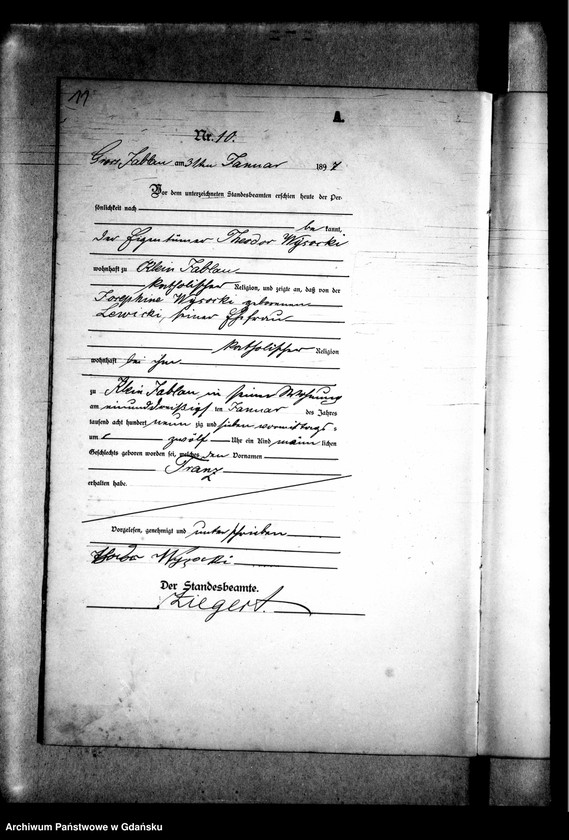 11
A.
Nr. 10.
Gross Jablau am 31ten Januar 1897
Vor dem unterzeichneten Standesbeamten erschien heute der Per-
sönlichkeit nach
be kannt,
der Eigentümer Theodor Wysocki
wohnhaft zu Klein Jablau
katholischer Religion, und zeigte an, daß von der
Josephine Wysocki geborenen
Lewicki, seiner Ehefrau
katholischer Religion
wohnhaft bei ihm
zu Klein Jablau in seiner Wohnung
am einunddreißigsten Januar des Jahres
tausend acht hundert neun zig und sieben vormittags
um zwölf Uhr ein Kind männ lichen
Geschlechts geboren worden sei, welches den Vornamen
Franz
erhalten habe.
Vorgelesen, genehmigt und unterschrieben
Theodor Wysocki
Der Standesbeamte.
Ziegert.
Archiwum Państwowe w Gdańsku